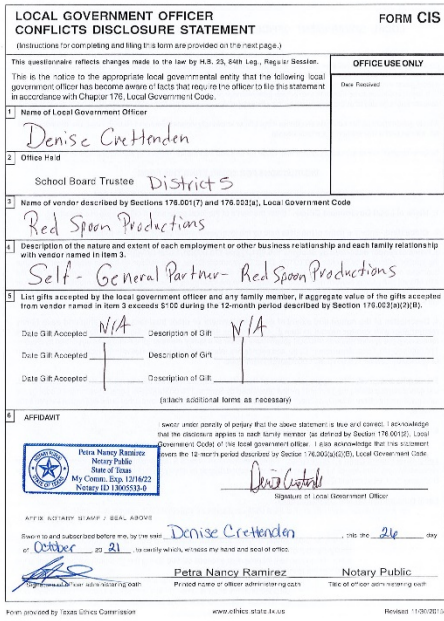 LOCAL GOVERNMENT OFFICER FORM CIS
CONFLICTS DISCLOSURE STATEMENT
(Instructions for completing and filing this form are provided on the next page.)
This questionnaire reflects changes made to the law by H.B. 23, 84th Leg., Regular Session. OFFICE USE ONLY
This is the notice to the appropriate local governmental entity that the following local
government officer has become aware of facts that require the officer to file this statement
in accordance with Chapter 176, Local Government Code.
Date Received
1 Name of Local Government Officer
Denise Crettenden
2 Office Held
School Board Trustee District 5
3 Name of vendor described by Sections 176.001(7) and 176.003(a), Local Government Code
Red Spoon Productions
4 Description of the nature and extent of each employment or other business relationship and each family relationship
with vendor named in item 3.
Self - General Partner - Red Spoon Productions
5 List gifts accepted by the local government officer and any family member, if aggregate value of the gifts accepted
from vendor named in item 3 exceeds $100 during the 12-month period described by Section 176.003(a)(2)(B).
Date Gift Accepted N/A Description of Gift N/A
Date Gift Accepted Description of Gift
Date Gift Accepted Description of Gift
(attach additional forms as necessary)
6 AFFIDAVIT
I swear under penalty of perjury that the above statement is true and correct. I acknowledge
that the disclosure applies to each family member (as defined by Section 176.001(2), Local
Government Code) of this local government officer. I also acknowledge that this statement
covers the 12-month period described by Section 176.003(a)(2)(B), Local Government Code.
NOTARY PUBLIC
STATE OF TEXAS
Petra Nancy Ramirez
Notary Public
State of Texas
My Comm. Exp. 12/16/22
Notary ID 13005533-0
Signature of Local Government Officer
AFFIX NOTARY STAMP / SEAL ABOVE
Sworn to and subscribed before me, by the said Denise Crettenden , this the 26 day
of October , 20 21 , to certify which, witness my hand and seal of office.
Petra Nancy Ramirez Notary Public
Signature of officer administering oath Printed name of officer administering oath Title of officer administering oath
Form provided by Texas Ethics Commission www.ethics.state.tx.us Revised 11/30/2015